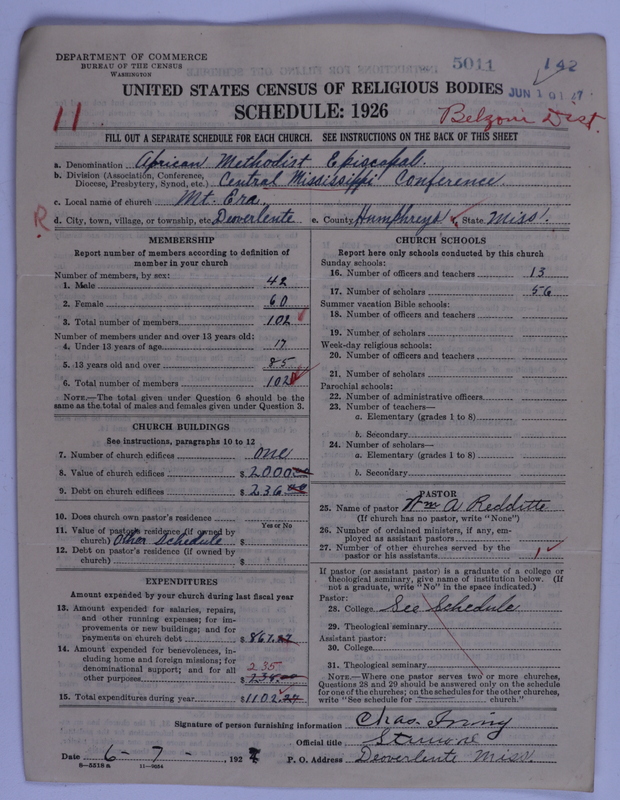 DEPARTMENT OF COMMERCE
BUREAU OF THE CENSUS
WASHINGTON
5011
142
UNITED STATES CENSUS OF RELIGIOUS BODIES
JUN 10 27
SCHEDULE: 1926
11
Belzoni Dist.
FILL OUT A SEPARATE SCHEDULE FOR EACH CHURCH. SEE INSTRUCTIONS ON THE BACK OF THIS SHEET
a. Denomination African Methodist Episcopal.
b. Division (Association, Conference, Diocese, Presbytery, Synod, etc.) Central Mississippi Conference.
c. Local name of church Mt. Era.
R
d. City, town, village, or township, etc. Deoverlente e. County Humphreys f. State Miss.
MEMBERSHIP
Report number of members according to definition of
member in your church
Number of members, by sex:
1. Male 42
2. Female 60
3. Total number of members 102
Number of members under and over 13 years old:
4. Under 13 years of age 17
5. 13 years old and over 85
6. Total number of members 102
NOTE.—The total given under Question 6 should be the
same as the total of males and females given under Question 3.
CHURCH BUILDINGS
See instructions, paragraphs 10 to 12
7. Number of church edifices one
8. Value of church edifices $ 2000.00
9. Debt on church edifices $ 236.00
10. Does church own pastor's residence
Yes or No
11. Value of pastor's residence (if owned by
church) Other Schedule $
12. Debt on pastor's residence (if owned by
church) $
EXPENDITURES
Amount expended by your church during last fiscal year
13. Amount expended for salaries, repairs,
and other running expenses; for im-
provements or new buildings; and for
payments on church debt $ 867.27
14. Amount expended for benevolences, in-
cluding home and foreign missions; for
denominational support; and for all
235
other purposes $
15. Total expenditures during year $ 1102.27
CHURCH SCHOOLS
Report here only schools conducted by this church
Sunday schools:
16. Number of officers and teachers 13
17. Number of scholars 56
Summer vacation Bible schools:
18. Number of officers and teachers
19. Number of scholars
Week-day religious schools:
20. Number of officers and teachers
21. Number of scholars
Parochial schools:
22. Number of administrative officers
23. Number of teachers—
a. Elementary (grades 1 to 8)
b. Secondary
24. Number of scholars—
a. Elementary (grades 1 to 8)
b. Secondary
PASTOR
25. Name of pastor Wm A. Redditte
(If church has no pastor, write "None")
26. Number of ordained ministers, if any, em-
ployed as assistant pastors
27. Number of other churches served by the
pastor or his assistants 1
If pastor (or assistant pastor) is a graduate of a college or
theological seminary, give name of institution below. (If
not a graduate, write "No" in the space indicated.)
Pastor:
28. College See Schedule
29. Theological seminary
Assistant pastor:
30. College
31. Theological seminary
NOTE.—Where one pastor serves two or more churches,
Questions 28 and 29 should be answered only on the schedule
for one of the churches; on the schedules for the other churches,
write "See schedule for church."
Signature of person furnishing information Chas. Irving
Official title
Date 6-7-, 1927 P. O. Address Deoverlente Miss.
8-5518a 11-9654